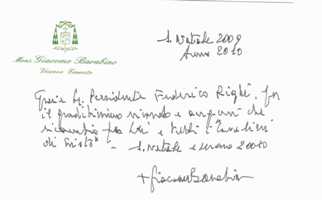 S. Natale 2009
Anno 2010
Mons. Giacomo Barabino
Vescovo Emerito
Grazie Sig. Presidente Federico Righi, per
il graditissimo ricordo e auguri che
ricambio per Lei e tutti i
di S. Natale e anno 2010
+ Giacomo Barabino